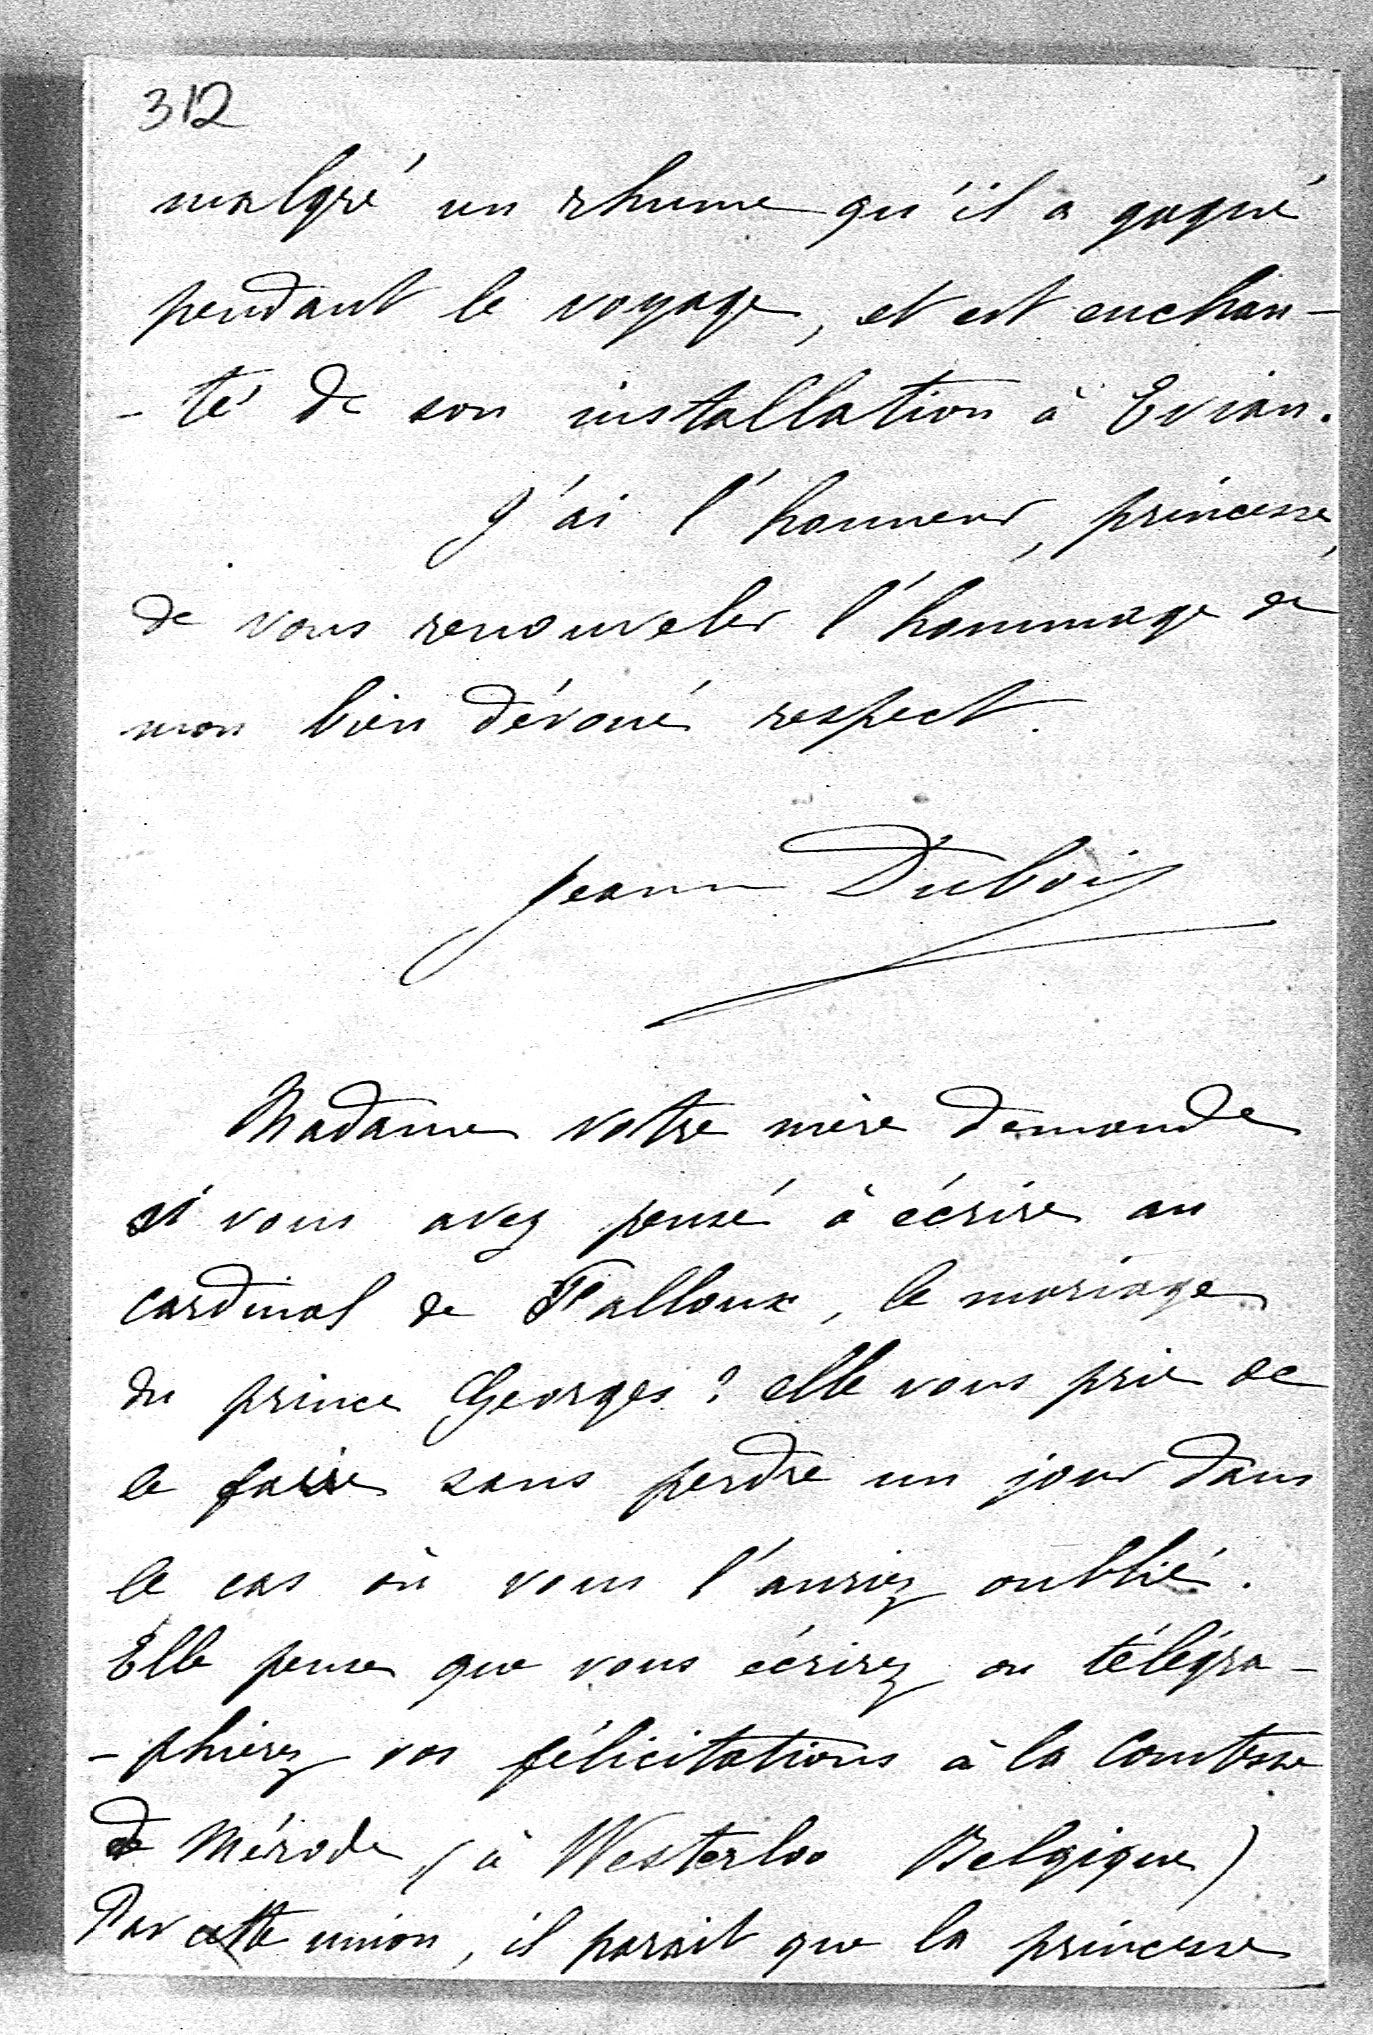 312
malgré un rhume qu'il a gagné
pendant le voyage, et est enchan-
-té de son installation à Evian.
J'ai l'honneur, princesse,
de vous renouveler l'hommage de
mon bien dévoué respect.
Jeanne Dubois
Madame votre mère demande
si vous avez pensé à écrire au
cardinal de Falloux, le mariage
du prince Georges? elle vous prie de
le faire sans perdre un jour dans
le cas où vous l'auriez oublié.
Elle pense que vous écrirez ou télégra-
-phierez vos félicitations à la Comtesse
de Mérode (à Westerloo Belgique)
Par cette union, il parait que la princesse